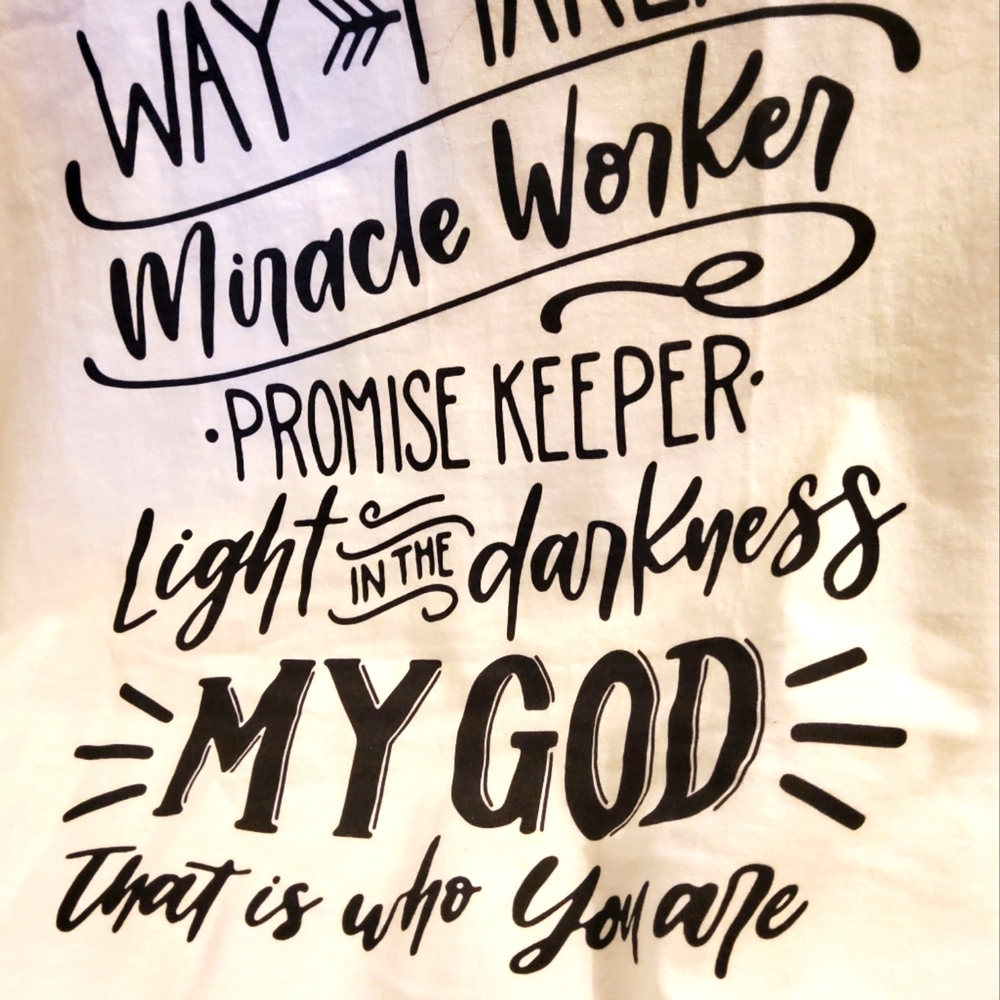 WAY MAKER
Miracle Worker
·PROMISE KEEPER·
Light IN THE darkness
MY GOD
That is who You are